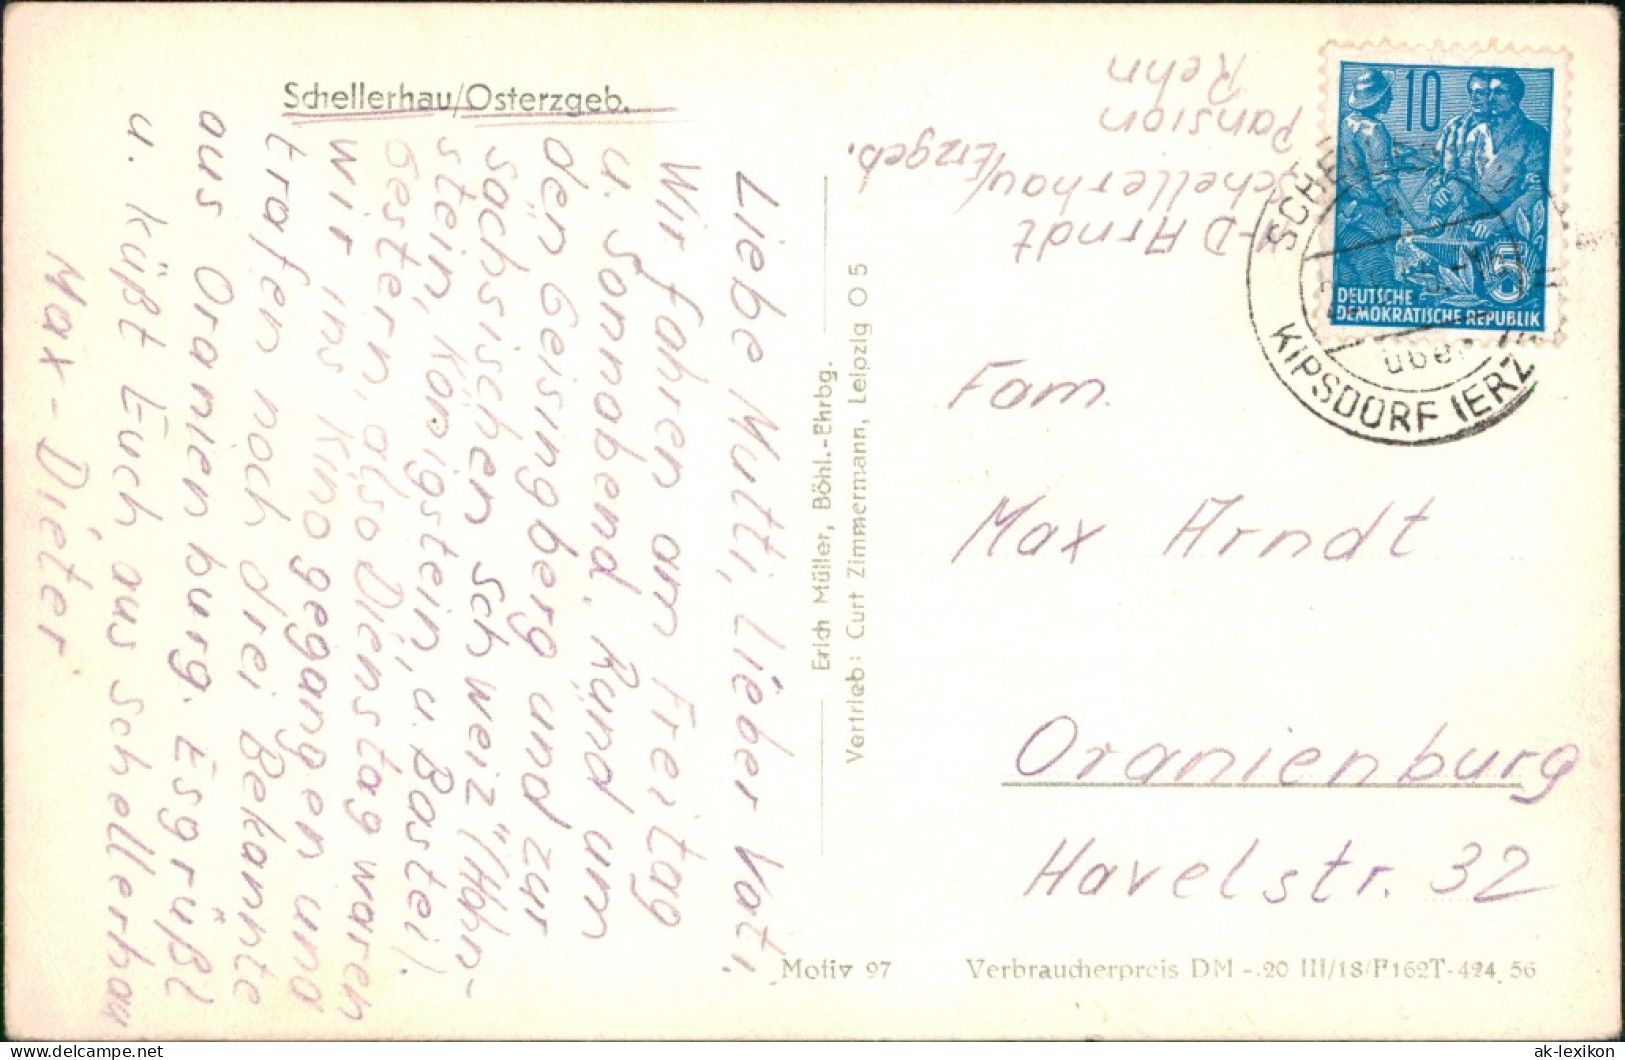 Schellerhau/Osterzgeb.
Liebe Mutti, Lieber Vati.
Wir fahren am Freitag
u. Sonnabend, Rund um
den Geisingberg und zur
sächsischen Schweiz" (Hohn-
stein, Königstein, u. Bastei).
Gestern, also Dienstag waren
wir ins Kino gegangen und
trafen noch drei Bekannte
aus Oranienburg. Es grüßt
u. küßt Euch aus Schellerhau
Max-Dieter
Erich Müller, Böhl.-Ehrbg.
Vertrieb: Curt Zimmermann, Leipzig O 5
D Arndt
Schellerhau/Erzgeb.
Pansion
Rehn
10
5
DEUTSCHE
DEMOKRATISCHE REPUBLIK
über
KIPSDORF (ERZ
Fam.
Max Arndt
Oranienburg
Havelstr. 32
Motiv 97
Verbraucherpreis DM -.20 III/18/F162T-424, 56
ak-lexikon
www.delcampe.net